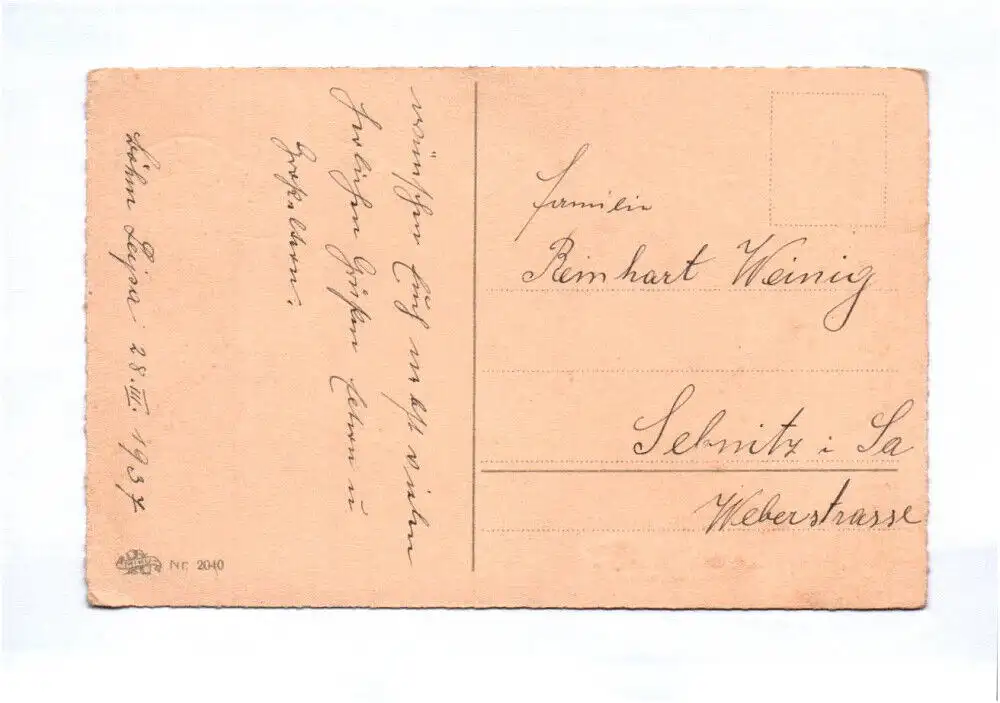 wünschen Euch nebst vielen
herzlichen Grüßen Eltern u
Großeltern.
Böhm Leipa 28.III.1937
Nr. 2040
Familie
Reinhart Weinig
Sebnitz i Sa
Weberstrasse